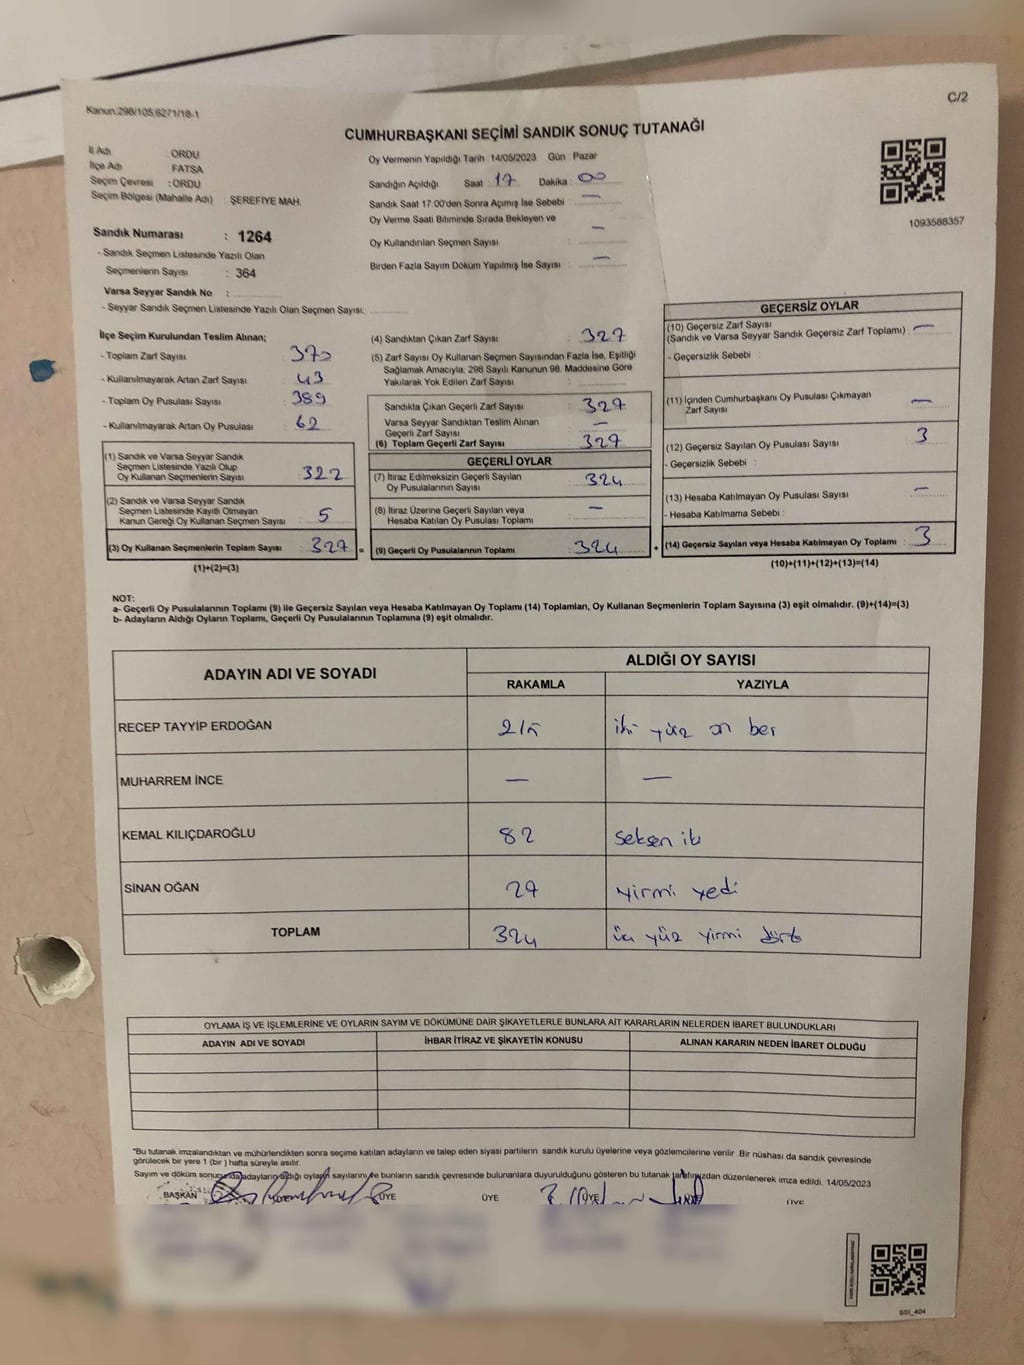 Kanun:298/105,6271/18-1
C/2
CUMHURBAŞKANI SEÇİMİ SANDIK SONUÇ TUTANAĞI
İl Adı : ORDU
İlçe Adı : FATSA
Seçim Çevresi : ORDU
Seçim Bölgesi (Mahalle Adı) : ŞEREFİYE MAH.
Sandık Numarası : 1264
- Sandık Seçmen Listesinde Yazılı Olan
Seçmenlerin Sayısı : 364
Varsa Seyyar Sandık No :
- Seyyar Sandık Seçmen Listesinde Yazılı Olan Seçmen Sayısı:
Oy Vermenin Yapıldığı Tarih :14/05/2023 Gün : Pazar
Sandığın Açıldığı Saat : 17 Dakika : 00
Sandık Saat 17:00'den Sonra Açılmış İse Sebebi : —
Oy Verme Saati Bitiminde Sırada Bekleyen ve
Oy Kullandırılan Seçmen Sayısı : —
Birden Fazla Sayım Döküm Yapılmış İse Sayısı : —
1093588357
İlçe Seçim Kurulundan Teslim Alınan;
- Toplam Zarf Sayısı : 370
- Kullanılmayarak Artan Zarf Sayısı : 43
- Toplam Oy Pusulası Sayısı : 389
- Kullanılmayarak Artan Oy Pusulası : 62
(1) Sandık ve Varsa Seyyar Sandık
Seçmen Listesinde Yazılı Olup
Oy Kullanan Seçmenlerin Sayısı : 322
(2) Sandık ve Varsa Seyyar Sandık
Seçmen Listesinde Kayıtlı Olmayan
Kanun Gereği Oy Kullanan Seçmen Sayısı : 5
(3) Oy Kullanan Seçmenlerin Toplam Sayısı : 327 =
(1)+(2)=(3)
(4) Sandıktan Çıkan Zarf Sayısı : 327
(5) Zarf Sayısı Oy Kullanan Seçmen Sayısından Fazla İse, Eşitliği
Sağlamak Amacıyla, 298 Sayılı Kanunun 98. Maddesine Göre
Yakılarak Yok Edilen Zarf Sayısı :
Sandıkta Çıkan Geçerli Zarf Sayısı : 327
Varsa Seyyar Sandıktan Teslim Alınan
Geçerli Zarf Sayısı : —
(6) Toplam Geçerli Zarf Sayısı : 327
GEÇERLİ OYLAR
(7) İtiraz Edilmeksizin Geçerli Sayılan
Oy Pusulalarının Sayısı : 324
(8) İtiraz Üzerine Geçerli Sayılan veya
Hesaba Katılan Oy Pusulası Toplamı : —
(9) Geçerli Oy Pusulalarının Toplamı : 324 +
GEÇERSİZ OYLAR
(10) Geçersiz Zarf Sayısı
(Sandık ve Varsa Seyyar Sandık Geçersiz Zarf Toplamı) : —
- Geçersizlik Sebebi :
(11) İçinden Cumhurbaşkanı Oy Pusulası Çıkmayan
Zarf Sayısı : —
(12) Geçersiz Sayılan Oy Pusulası Sayısı : 3
- Geçersizlik Sebebi :
(13) Hesaba Katılmayan Oy Pusulası Sayısı : —
- Hesaba Katılmama Sebebi :
(14) Geçersiz Sayılan veya Hesaba Katılmayan Oy Toplamı : 3
(10)+(11)+(12)+(13)=(14)
NOT:
a- Geçerli Oy Pusulalarının Toplamı (9) ile Geçersiz Sayılan veya Hesaba Katılmayan Oy Toplamı (14) Toplamları, Oy Kullanan Seçmenlerin Toplam Sayısına (3) eşit olmalıdır. (9)+(14)=(3)
b- Adayların Aldığı Oyların Toplamı, Geçerli Oy Pusulalarının Toplamına (9) eşit olmalıdır.
ADAYIN ADI VE SOYADI
ALDIĞI OY SAYISI
RAKAMLA YAZIYLA
RECEP TAYYİP ERDOĞAN 215 iki yüz on beş
MUHARREM İNCE — —
KEMAL KILIÇDAROĞLU 82 Seksen iki
SİNAN OĞAN 27 yirmi yedi
TOPLAM 324 üç yüz yirmi dört
OYLAMA İŞ VE İŞLEMLERİNE VE OYLARIN SAYIM VE DÖKÜMÜNE DAİR ŞİKAYETLERLE BUNLARA AİT KARARLARIN NELERDEN İBARET BULUNDUKLARI
ADAYIN ADI VE SOYADI İHBAR İTİRAZ VE ŞİKAYETİN KONUSU ALINAN KARARIN NEDEN İBARET OLDUĞU
*Bu tutanak imzalandıktan ve mühürlendikten sonra seçime katılan adayların ve talep eden siyasi partilerin sandık kurulu üyelerine veya gözlemcilerine verilir .Bir nüshası da sandık çevresinde
görülecek bir yere 1 (bir ) hafta süreyle asılır.
Sayım ve döküm sonucunda adayların aldığı oyların sayılarını ve bunların sandık çevresinde bulunanlara duyurulduğunu gösteren bu tutanak tarafımızdan düzenlenerek imza edildi. 14/05/2023
BAŞKAN ÜYE ÜYE ÜYE ÜYE ÜYE
SSI_404